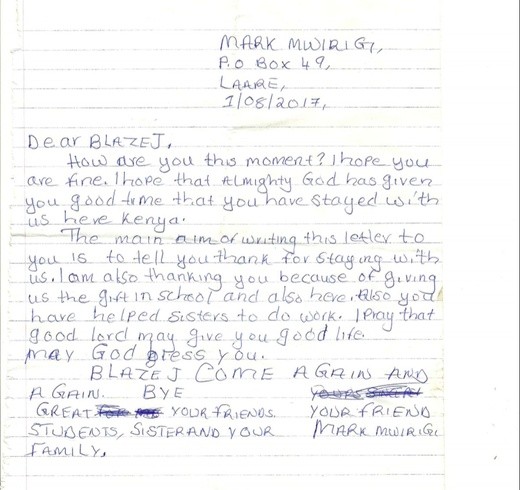 MARK MWIRIGI,
P.O BOX 49,
LAARE,
1/08/2017,
Dear BLAZEJ,
How are you this moment? I hope you
are fine. I hope that Almighty God has given
you good time that you have stayed with
us here Kenya.
The main aim of writing this letter to
you is to tell you thank for staying with
us. I am also thanking you because of giving
us the gift in school and also here. Also you
have helped sisters to do work. I Pray that
good lord may give you good life.
MAY GOD bless you.
BLAZEJ COME AGAIN AND
AGAIN. BYE
GREAT YOUR FRIENDS YOUR FRIEND
STUDENTS, SISTER AND YOUR MARK MWIRIGI
FAMILY.